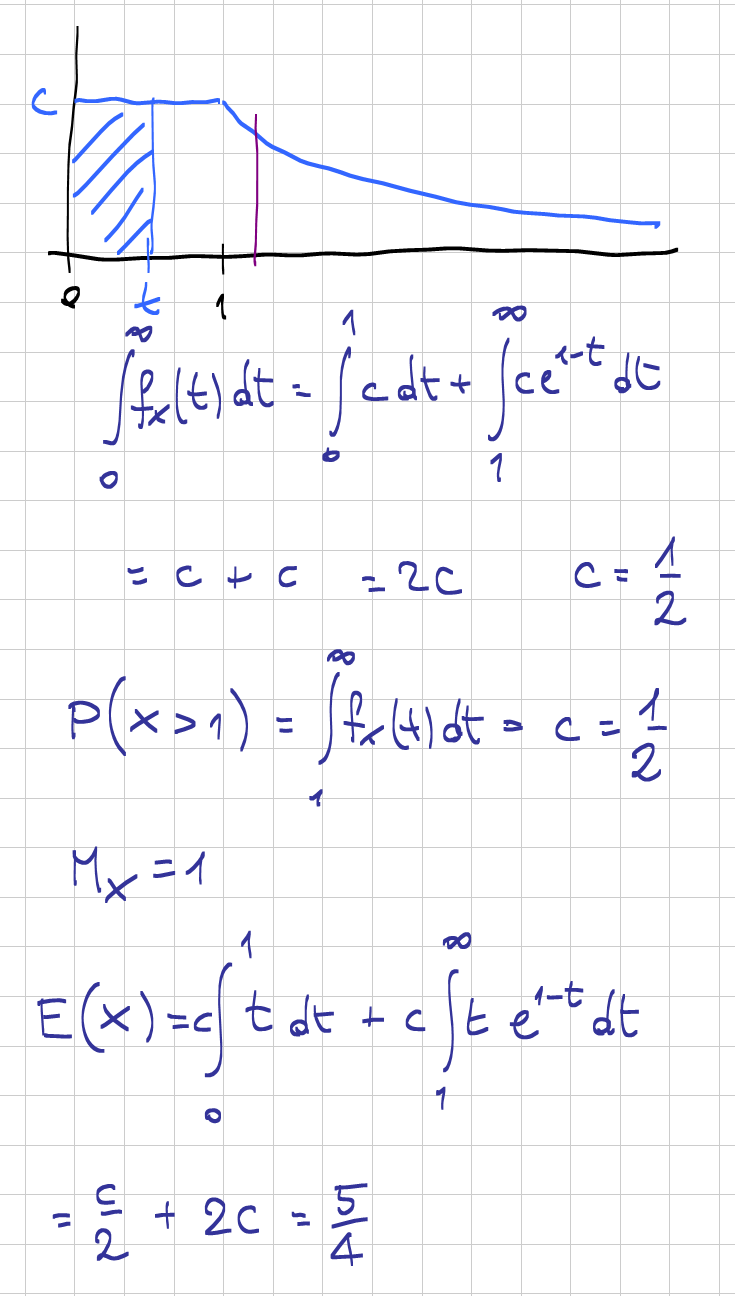 c
0 t 1
∫₀^∞ fₓ(t) dt = ∫₀¹ c dt + ∫₁^∞ c e^{1-t} dt
= c + c = 2c c = 1/2
P(x > 1) = ∫₁^∞ fₓ(t) dt = c = 1/2
Mₓ = 1
E(x) = c ∫₀¹ t dt + c ∫₁^∞ t e^{1-t} dt
= c/2 + 2c = 5/4